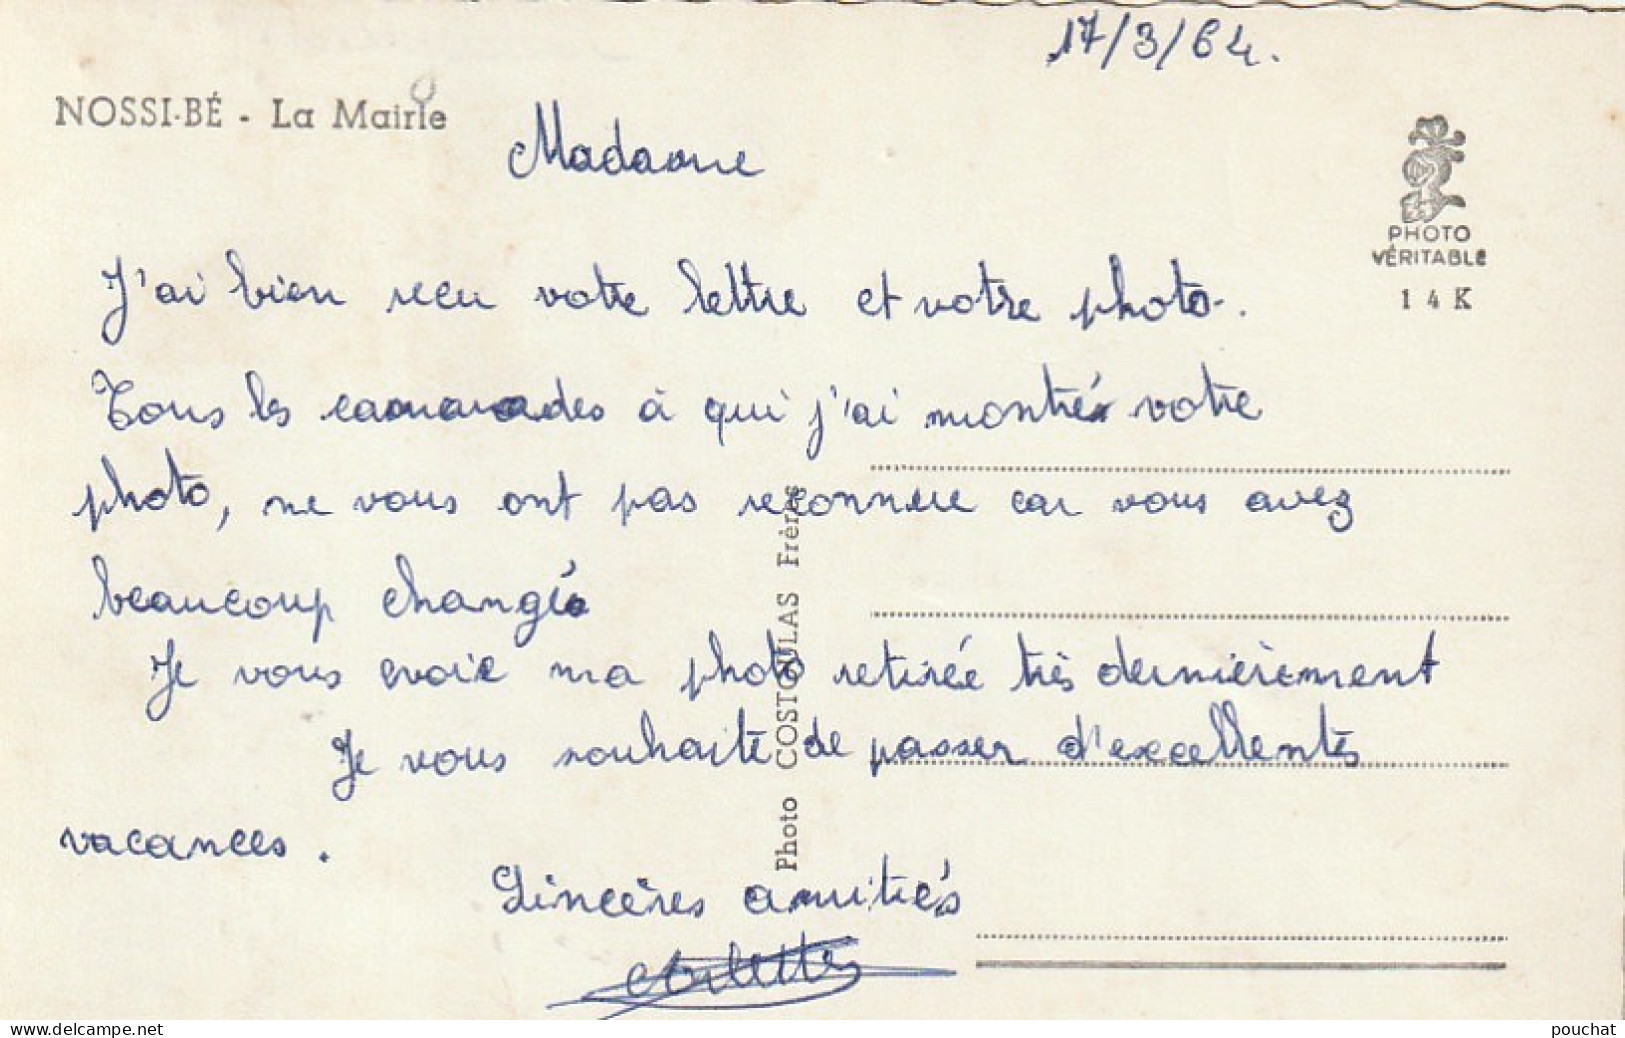 17/3/64.
NOSSI-BÉ - La Mairie
Madame
PHOTO
VÉRITABLE
14K
J'ai bien reçu votre lettre et votre photo.
Tous les camarades à qui j'ai montré votre
photo, ne vous ont pas reconnue car vous avez
beaucoup changé
Je vous evoie ma photo retirée très dernièrement
Je vous souhaite de passer d'excellentes
vacances.
Sincères amitiés
Arlette
Photo COSTOULAS Frères
delcampe.net
pouchat